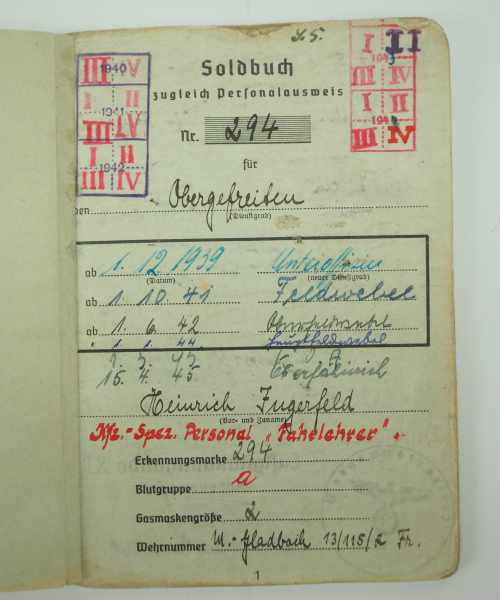 Soldbuch
zugleich Personalausweis
Nr. 294
für
Obergefreiten
(Dienstgrad)
ab 1. 12 1939 Unteroffizier
(Datum) (neuer Dienstgrad)
ab 1. 10. 41 Feldwebel
ab 1. 6. 42 Oberfeldwebel
" 1. 1. 44. Hauptfeldwebel
15. 4. 45 Oberfähnrich
Heinrich Ingerfeld
(Vor- und Zuname)
Kfz.-Spez. Personal „Fahrlehrer".
Erkennungsmarke 294
Blutgruppe a
Gasmaskengröße 2
Wehrnummer M.-Gladbach 13/115/2 Fr.
1
III 1940 IV
I II
1941
III IV
I II
1942
III IV
I II
III IV
I II
III IV